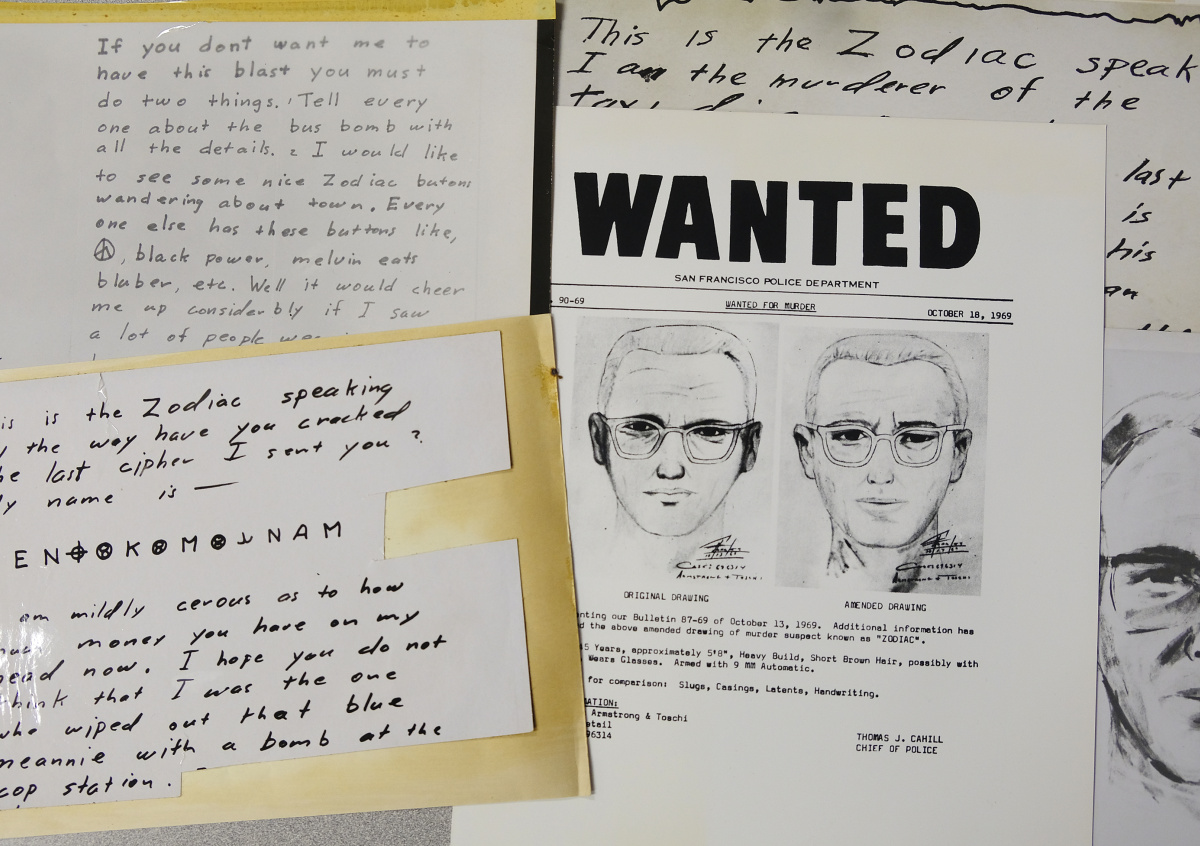 If you dont want me to
have this blast you must
do two things. Tell every
one about the bus bomb with
all the details. 2 I would like
to see some nice Zodiac butons
wandering about town. Every
one else has these buttons like,
, black power, melvin eats
bluber, etc. Well it would cheer
me up considerbly if I saw
a lot of people
is is the Zodiac speaking
y the way have you cracked
he last cipher I sent you ?
y name is —
EN K M NAM
am mildly cerous as to how
money you have on my
ead now. I hope you do not
think that I was the one
who wiped out that blue
meannie with a bomb at the
cop station.
This is the Zodiac speak
I am the murderer of the
last
is
his
an
WANTED
SAN FRANCISCO POLICE DEPARTMENT
90-69 WANTED FOR MURDER OCTOBER 18, 1969
ORIGINAL DRAWING AMENDED DRAWING
nting our Bulletin 87-69 of October 13, 1969. Additional information has
d the above amended drawing of murder suspect known as "ZODIAC".
5 Years, approximately 5'8", Heavy Build, Short Brown Hair, possibly with
Wears Glasses. Armed with 9 MM Automatic.
for comparison: Slugs, Casings, Latents, Handwriting.
MATION:
Armstrong & Toschi
etail
96314
THOMAS J. CAHILL
CHIEF OF POLICE